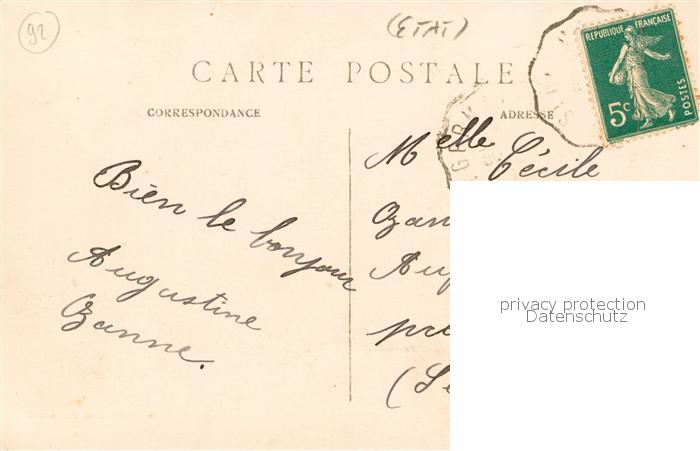 92
(ETAT)
CARTE POSTALE
CORRESPONDANCE
ADRESSE
REPUBLIQUE FRANÇAISE
POSTES
5c
Bien le bonjour
Augustine
Zanne.
Melle Cécile
Zan
privacy protection
Datenschutz